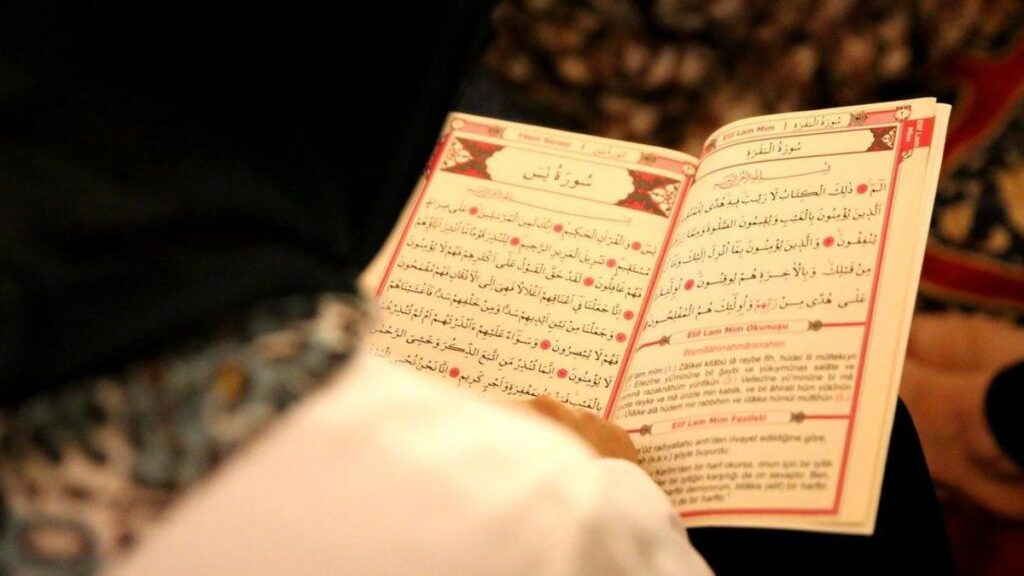 Elif Lam Mim | سُورَةُ الْبَقَرَةِ
Elif Lam
Mim
سُورَةُ الْبَقَرَةِ
بِسْمِ اللّٰهِ الرَّحْمٰنِ الرَّحِيمِ
الٓمٓ ذٰلِكَ الْكِتَابُ لَا رَيْبَ فِيهِ هُدًى لِلْمُتَّقِينَ
الَّذِينَ يُؤْمِنُونَ بِالْغَيْبِ وَيُقِيمُونَ الصَّلٰوةَ وَمِمَّا
يُنْفِقُونَ وَالَّذِينَ يُؤْمِنُونَ بِمَا أُنْزِلَ إِلَيْكَ وَمَا
مِنْ قَبْلِكَ وَبِالْاٰخِرَةِ هُمْ يُوقِنُونَ أُولٰئِكَ
عَلٰى هُدًى مِنْ رَبِّهِمْ وَأُولٰئِكَ هُمُ الْمُفْلِحُونَ
Elif Lam Mim Okunuşu
Bismillâhirrahmânirrahîm
lam mîm (1.) Zâlikel kitâbü lâ raybe fîh, hüdel lil müttekıyn
Ellezîne yü'minûne bil ğaybi ve yükıymûnas salâte ve
mmâ razaknâhüm yünfikûn (3.) Vellezîne yü'minûne bi mâ
ünzile ileyke ve mâ ünzile min kablik, ve bil âhırati hüm yûkinûn
Ülâike alâ hüdem mir rabbihim ve ülâike hümül müflihûn (5.)
Elif Lam Mim Fazileti
radıyallahu anh'den rivayet edildiğine göre,
(s.a.v.) şöyle buyurdu:
Kerim'den bir harf okursa, onun için bir iyilik
bir iyiliğin karşılığı da on sevaptır. Ben,
harftir demiyorum; bilâkis (elif) bir harftir,
de bir harftir."
Yâsin Suresi | سُورَةُ يٰسٓ
سُورَةُ يٰسٓ
بِسْمِ اللّٰهِ الرَّحْمٰنِ الرَّحِيمِ
يٰسٓ وَالْقُرْاٰنِ الْحَكِيمِ إِنَّكَ لَمِنَ الْمُرْسَلِينَ عَلٰى صِرَاطٍ
مُسْتَقِيمٍ تَنْزِيلَ الْعَزِيزِ الرَّحِيمِ لِتُنْذِرَ قَوْمًا مَا أُنْذِرَ اٰبَاؤُهُمْ
فَهُمْ غَافِلُونَ لَقَدْ حَقَّ الْقَوْلُ عَلٰى أَكْثَرِهِمْ فَهُمْ لَا يُؤْمِنُونَ
إِنَّا جَعَلْنَا فِي أَعْنَاقِهِمْ أَغْلَالًا فَهِيَ إِلَى الْأَذْقَانِ فَهُمْ مُقْمَحُونَ
وَجَعَلْنَا مِنْ بَيْنِ أَيْدِيهِمْ سَدًّا وَمِنْ خَلْفِهِمْ سَدًّا فَأَغْشَيْنَاهُمْ
فَهُمْ لَا يُبْصِرُونَ وَسَوَاءٌ عَلَيْهِمْ ءَأَنْذَرْتَهُمْ أَمْ لَمْ تُنْذِرْهُمْ
لَا يُؤْمِنُونَ إِنَّمَا تُنْذِرُ مَنِ اتَّبَعَ الذِّكْرَ وَخَشِيَ الرَّحْمٰنَ
بِمَغْفِرَةٍ وَأَجْرٍ كَرِيمٍ إِنَّا نَحْنُ نُحْيِي